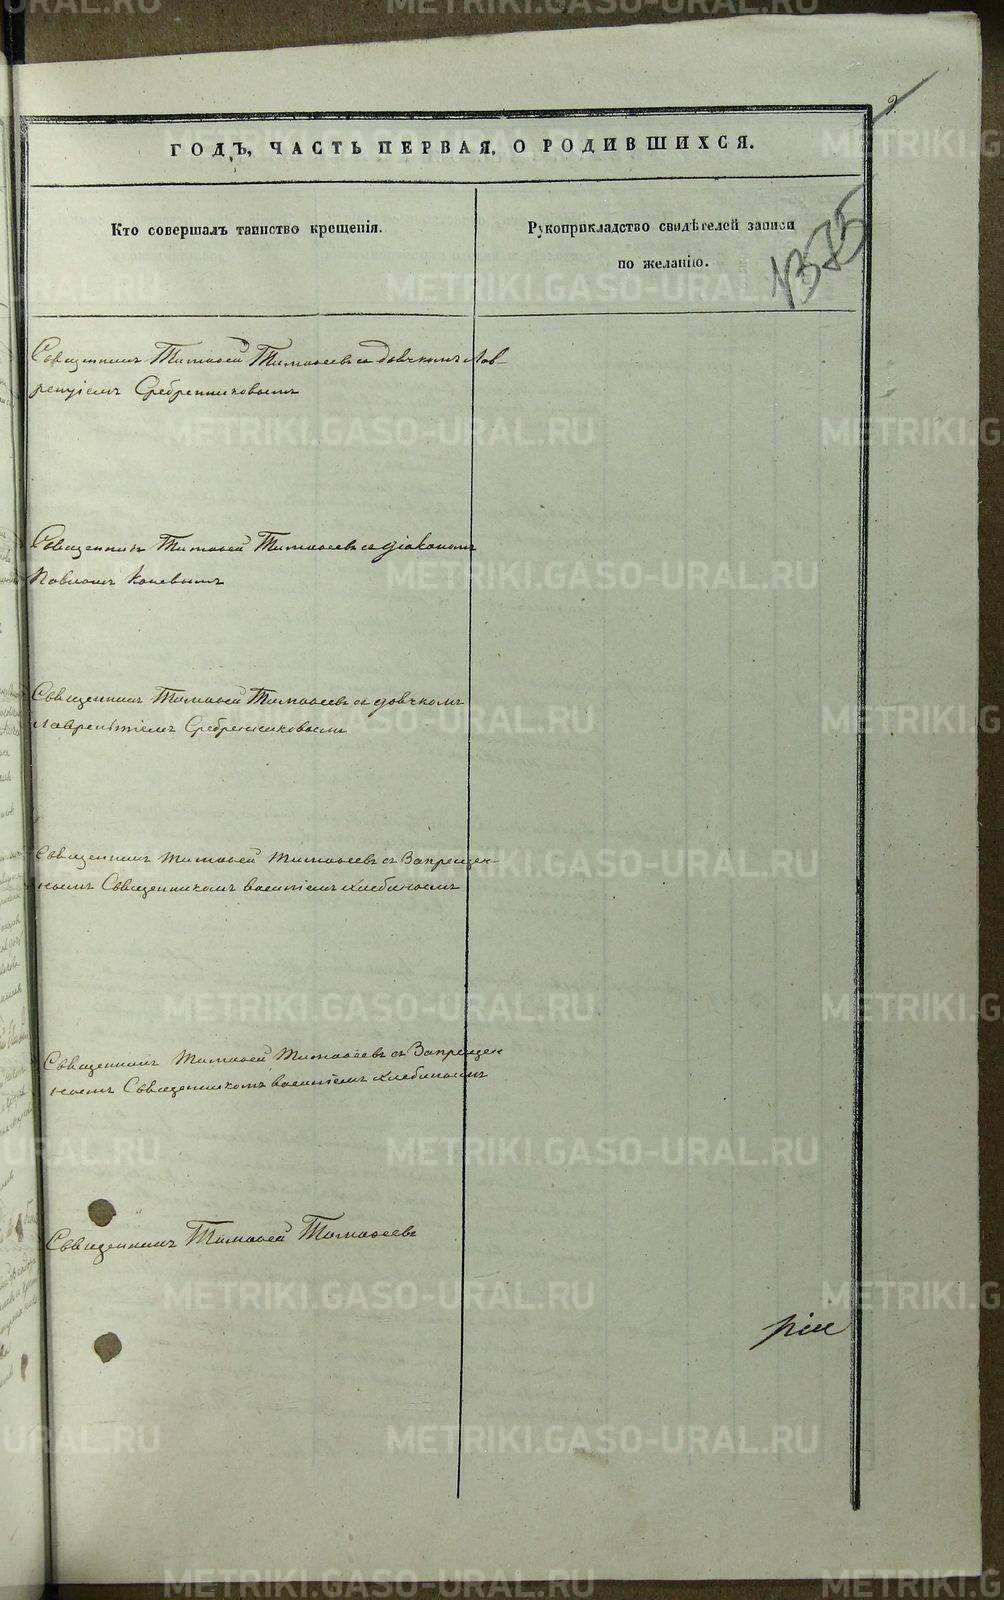 2
ГОДЪ, ЧАСТЬ ПЕРВАЯ, О РОДИВШИХСЯ.
Кто совершалъ таинство крещенія.
Рукоприкладство свидѣтелей записи
по желанію.
1375
Священникъ Тимофей Тимофеевъ съ дьячкомъ Лав-
рентіемъ Сребренниковымъ
Священникъ Тимофей Тимофеевъ съ діакономъ
Павломъ Коневымъ
Священникъ Тимофей Тимофеевъ съ дьячкомъ
Лаврентіемъ Сребренниковымъ
Священникъ Тимофей Тимофеевъ съ Запрещен-
нымъ Священникомъ Хлебинымъ
Священникъ Тимофей Тимофеевъ съ Запрещен
нымъ Священникомъ Хлебинымъ
Священникъ Тимофей Тимофеевъ
METRIKI.GASO-URAL.RU